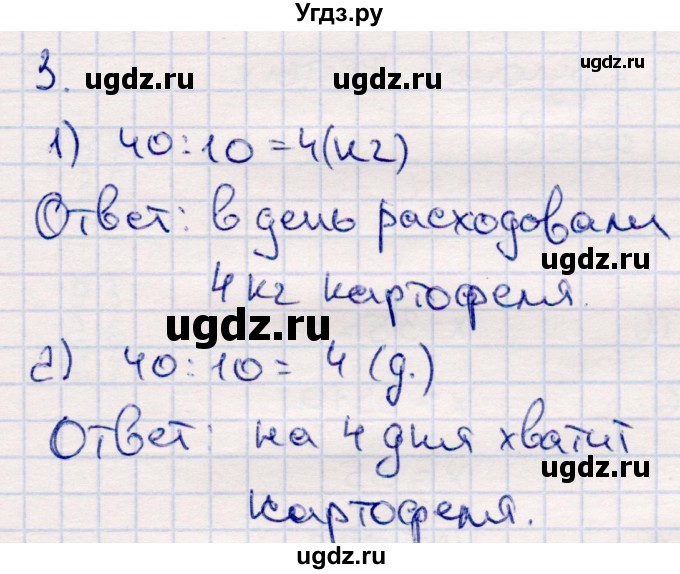 Угдз.ру
3.
ugdz.ru ugdz.ru ugdz.ru
1) 40:10=4(кг)
Ответ: в день расходовали
ugdz.ru
4 кг картофеля.
ugdz.ru
2) 40:10= 4 (д.)
Ответ: на 4 дня хватит
ugdz.ru
картофеля.
ugdz.ru